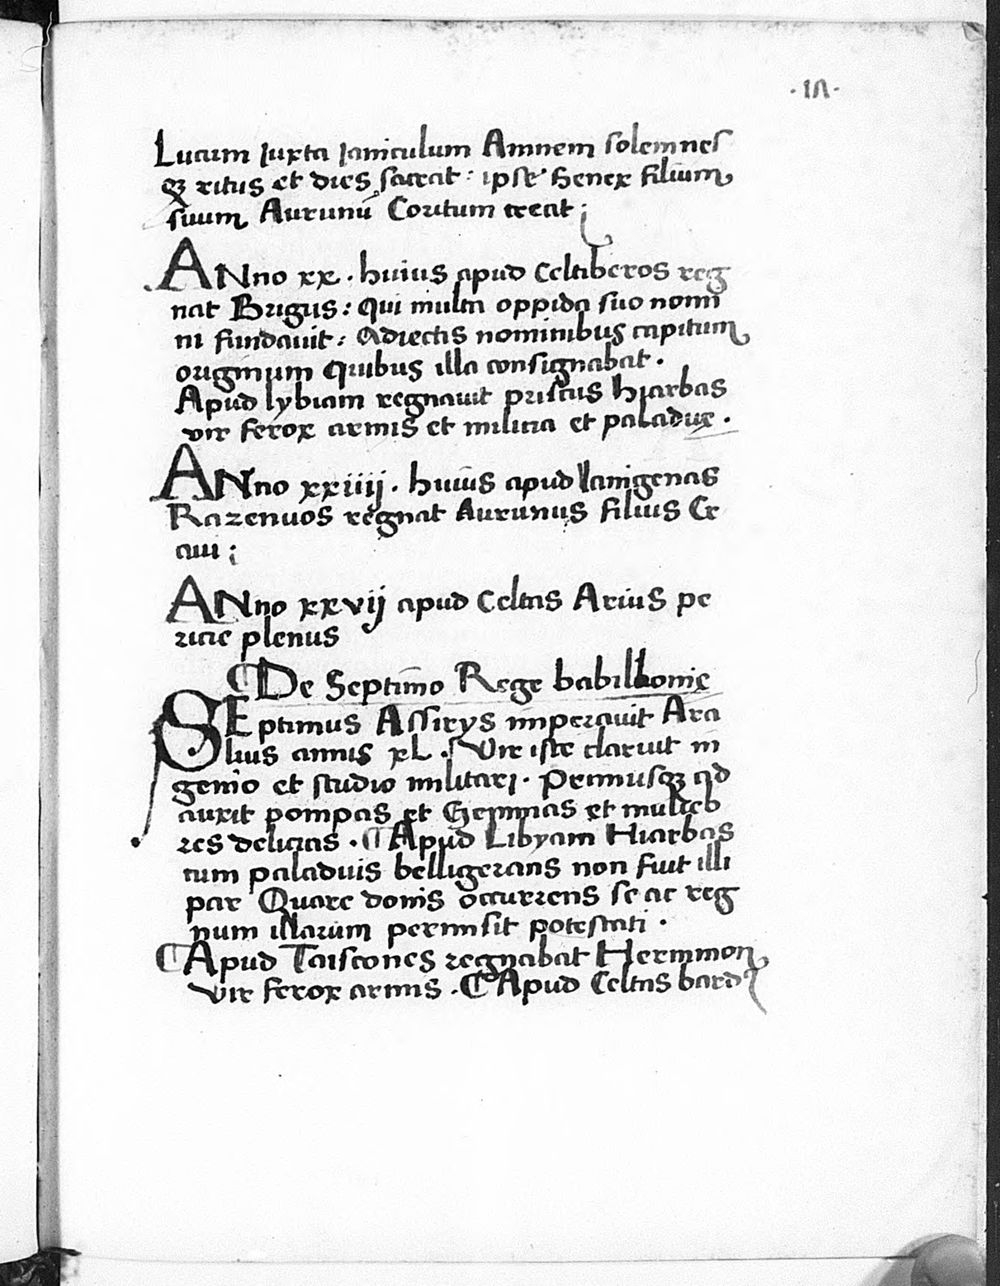 Lucum Iuxta Ianiculum Amnem solemnes
qꝫ ritus et dies sacrat : ipse Senex filium
suum Aurunū Coritum creat ;
ANno xx . huius apud Celtiberos reg
nat Brigus : Qui multa oppida suo nomi
ni fundauit : Adiectis nominibus capitum
originum Quibus illa consignabat .
Apud lybiam regnauit priscus hiarbas
vir ferox armis et milicia et paladue .
ANno xxiiij . huius apud Ianigenas
Razenuos regnat Aurunus filius Cr
aui ;
ANno xxvij apud Celtas Arius pe
ricie plenus
¶De Septimo Rege babilhonię
SEptimus Assirys imperauit Ara
lius annis xL . Vir iste claruit in
genio et studio militari . Primusqꝫ ad
auxit pompas et Gemmas et mulieb
res delicias . ¶Apud Libyam Hiarbas
cum paladuis belligerans non fuit illi
par Quare donis occurrens se ac reg
num illarum permisit potestati .
¶Apud Tuiscones regnabat Hermmon
vir ferox armis . ¶Apud Celtas bardꝰ